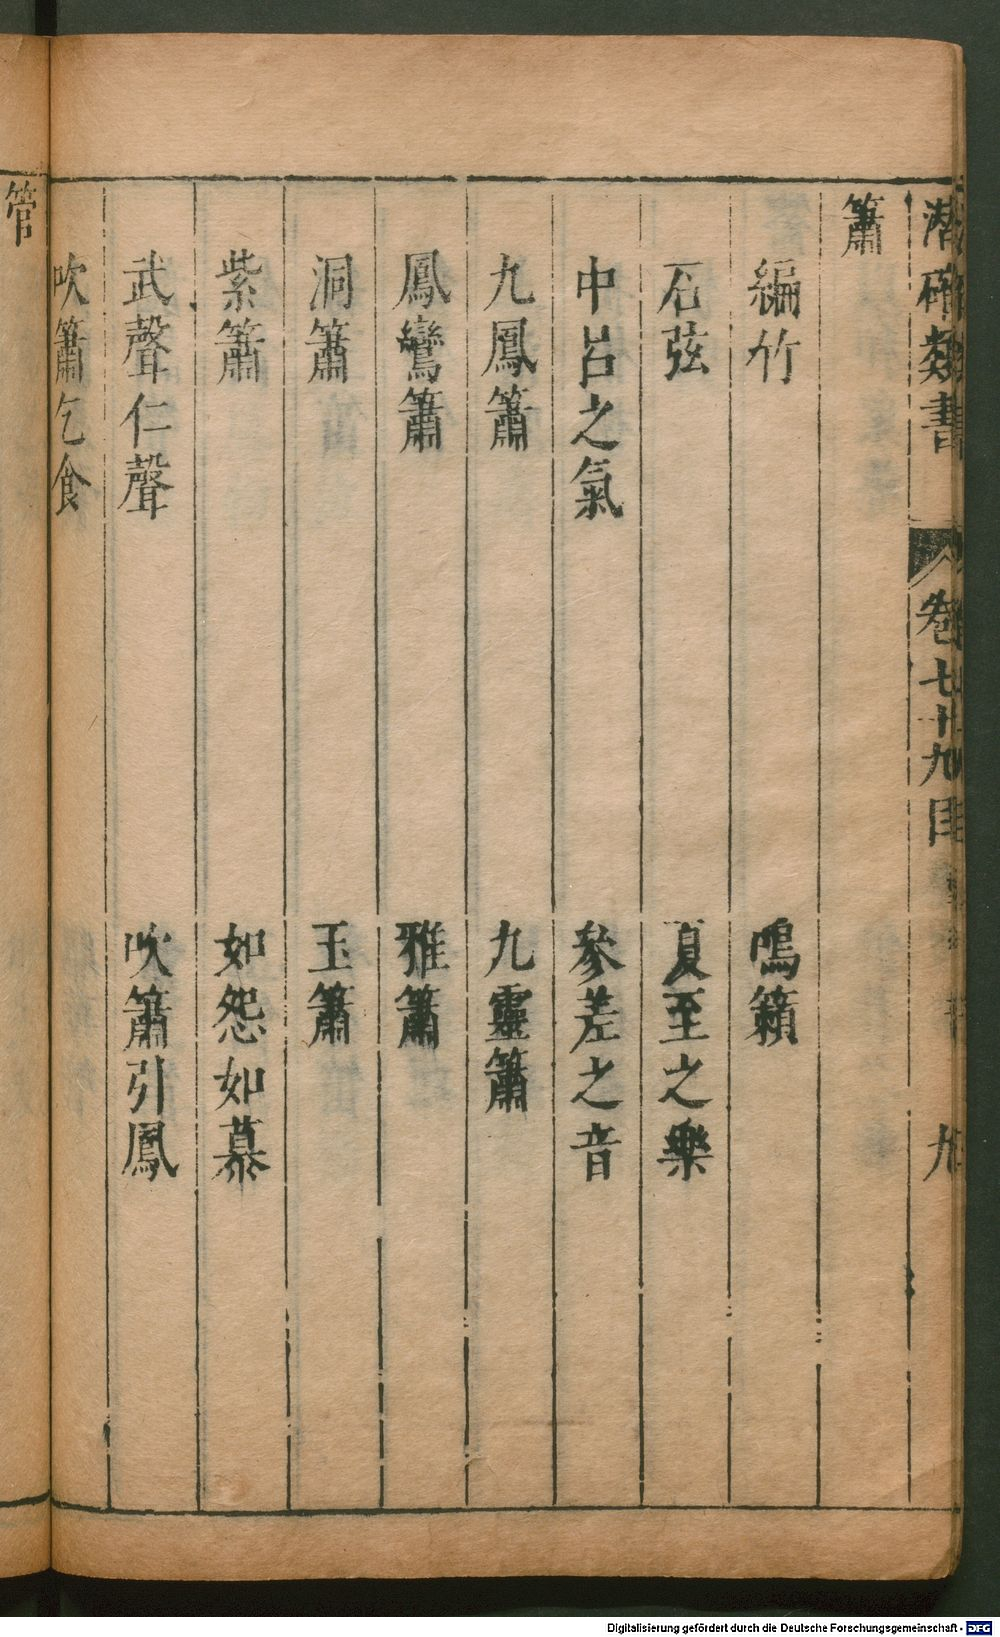 潜確類書 卷七十九目 九
簫
編竹 鳴籟
石弦 夏至之樂
中呂之氣 參差之音
九鳳簫 九靈簫
鳳鸞簫 雅簫
洞簫 玉簫
紫簫 如怨如慕
武聲仁聲 吹簫引鳳
吹簫乞食
管
Digitalisierung gefördert durch die Deutsche Forschungsgemeinschaft - DFG